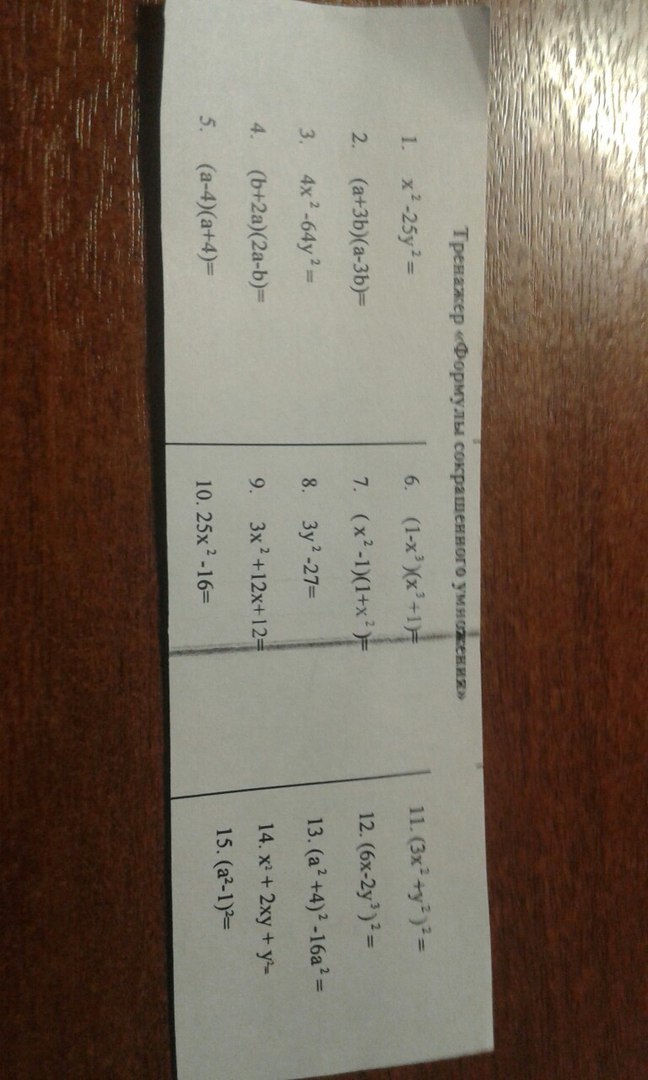 Тренажер «Формулы сокращенного умножения»
1. x²-25y²=
2. (a+3b)(a-3b)=
3. 4x²-64y²=
4. (b+2a)(2a-b)=
5. (a-4)(a+4)=
6. (1-x³)(x³+1)=
7. (x²-1)(1+x²)=
8. 3y²-27=
9. 3x²+12x+12=
10. 25x²-16=
11. (3x²+y²)²=
12. (6x-2y³)²=
13. (a²+4)²-16a²=
14. x²+ 2xy + y²=
15. (a²-1)²=